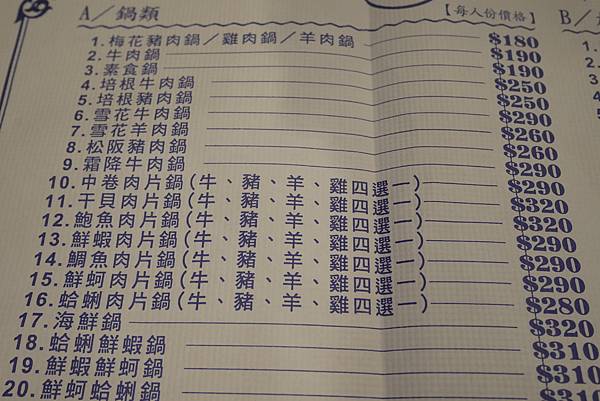 A／鍋類 【每人份價格】
1.梅花豬肉鍋／雞肉鍋／羊肉鍋 $180
2.牛肉鍋 $190
3.素食鍋 $190
4.培根牛肉鍋 $250
5.培根豬肉鍋 $250
6.雪花牛肉鍋 $290
7.雪花羊肉鍋 $260
8.松阪豬肉鍋 $260
9.霜降牛肉鍋 $290
10.中卷肉片鍋(牛、豬、羊、雞四選一) $290
11.干貝肉片鍋(牛、豬、羊、雞四選一) $320
12.鮑魚肉片鍋(牛、豬、羊、雞四選一) $320
13.鮮蝦肉片鍋(牛、豬、羊、雞四選一) $290
14.鯛魚肉片鍋(牛、豬、羊、雞四選一) $290
15.鮮蚵肉片鍋(牛、豬、羊、雞四選一) $290
16.蛤蜊肉片鍋(牛、豬、羊、雞四選一) $280
17.海鮮鍋 $320
18.蛤蜊鮮蝦鍋 $310
19.鮮蝦鮮蚵鍋 $310
20.鮮蚵蛤蜊鍋 $310
B／